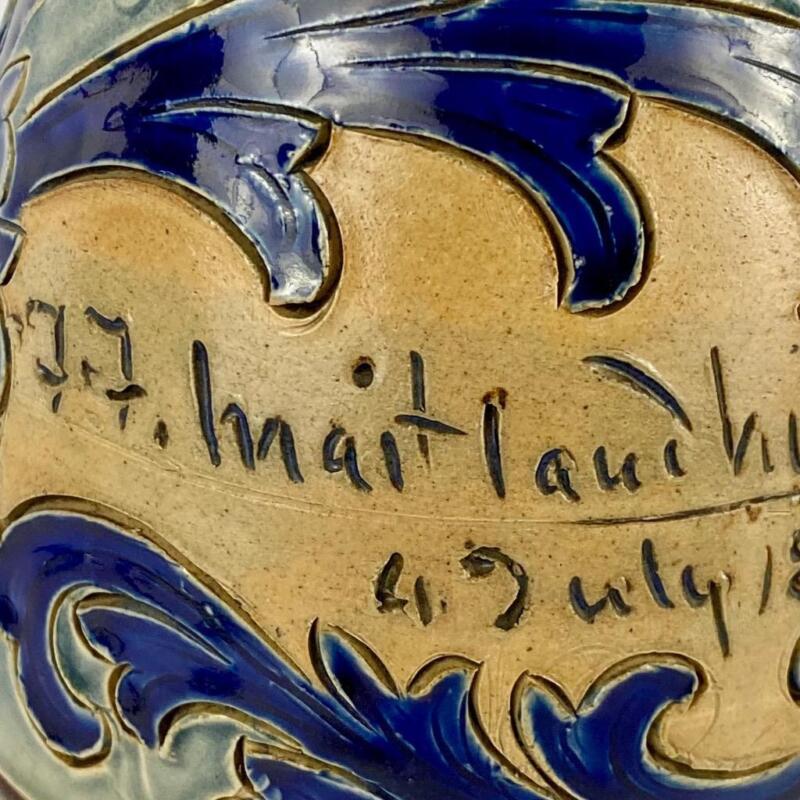 J.J. Maitland
4. July 18